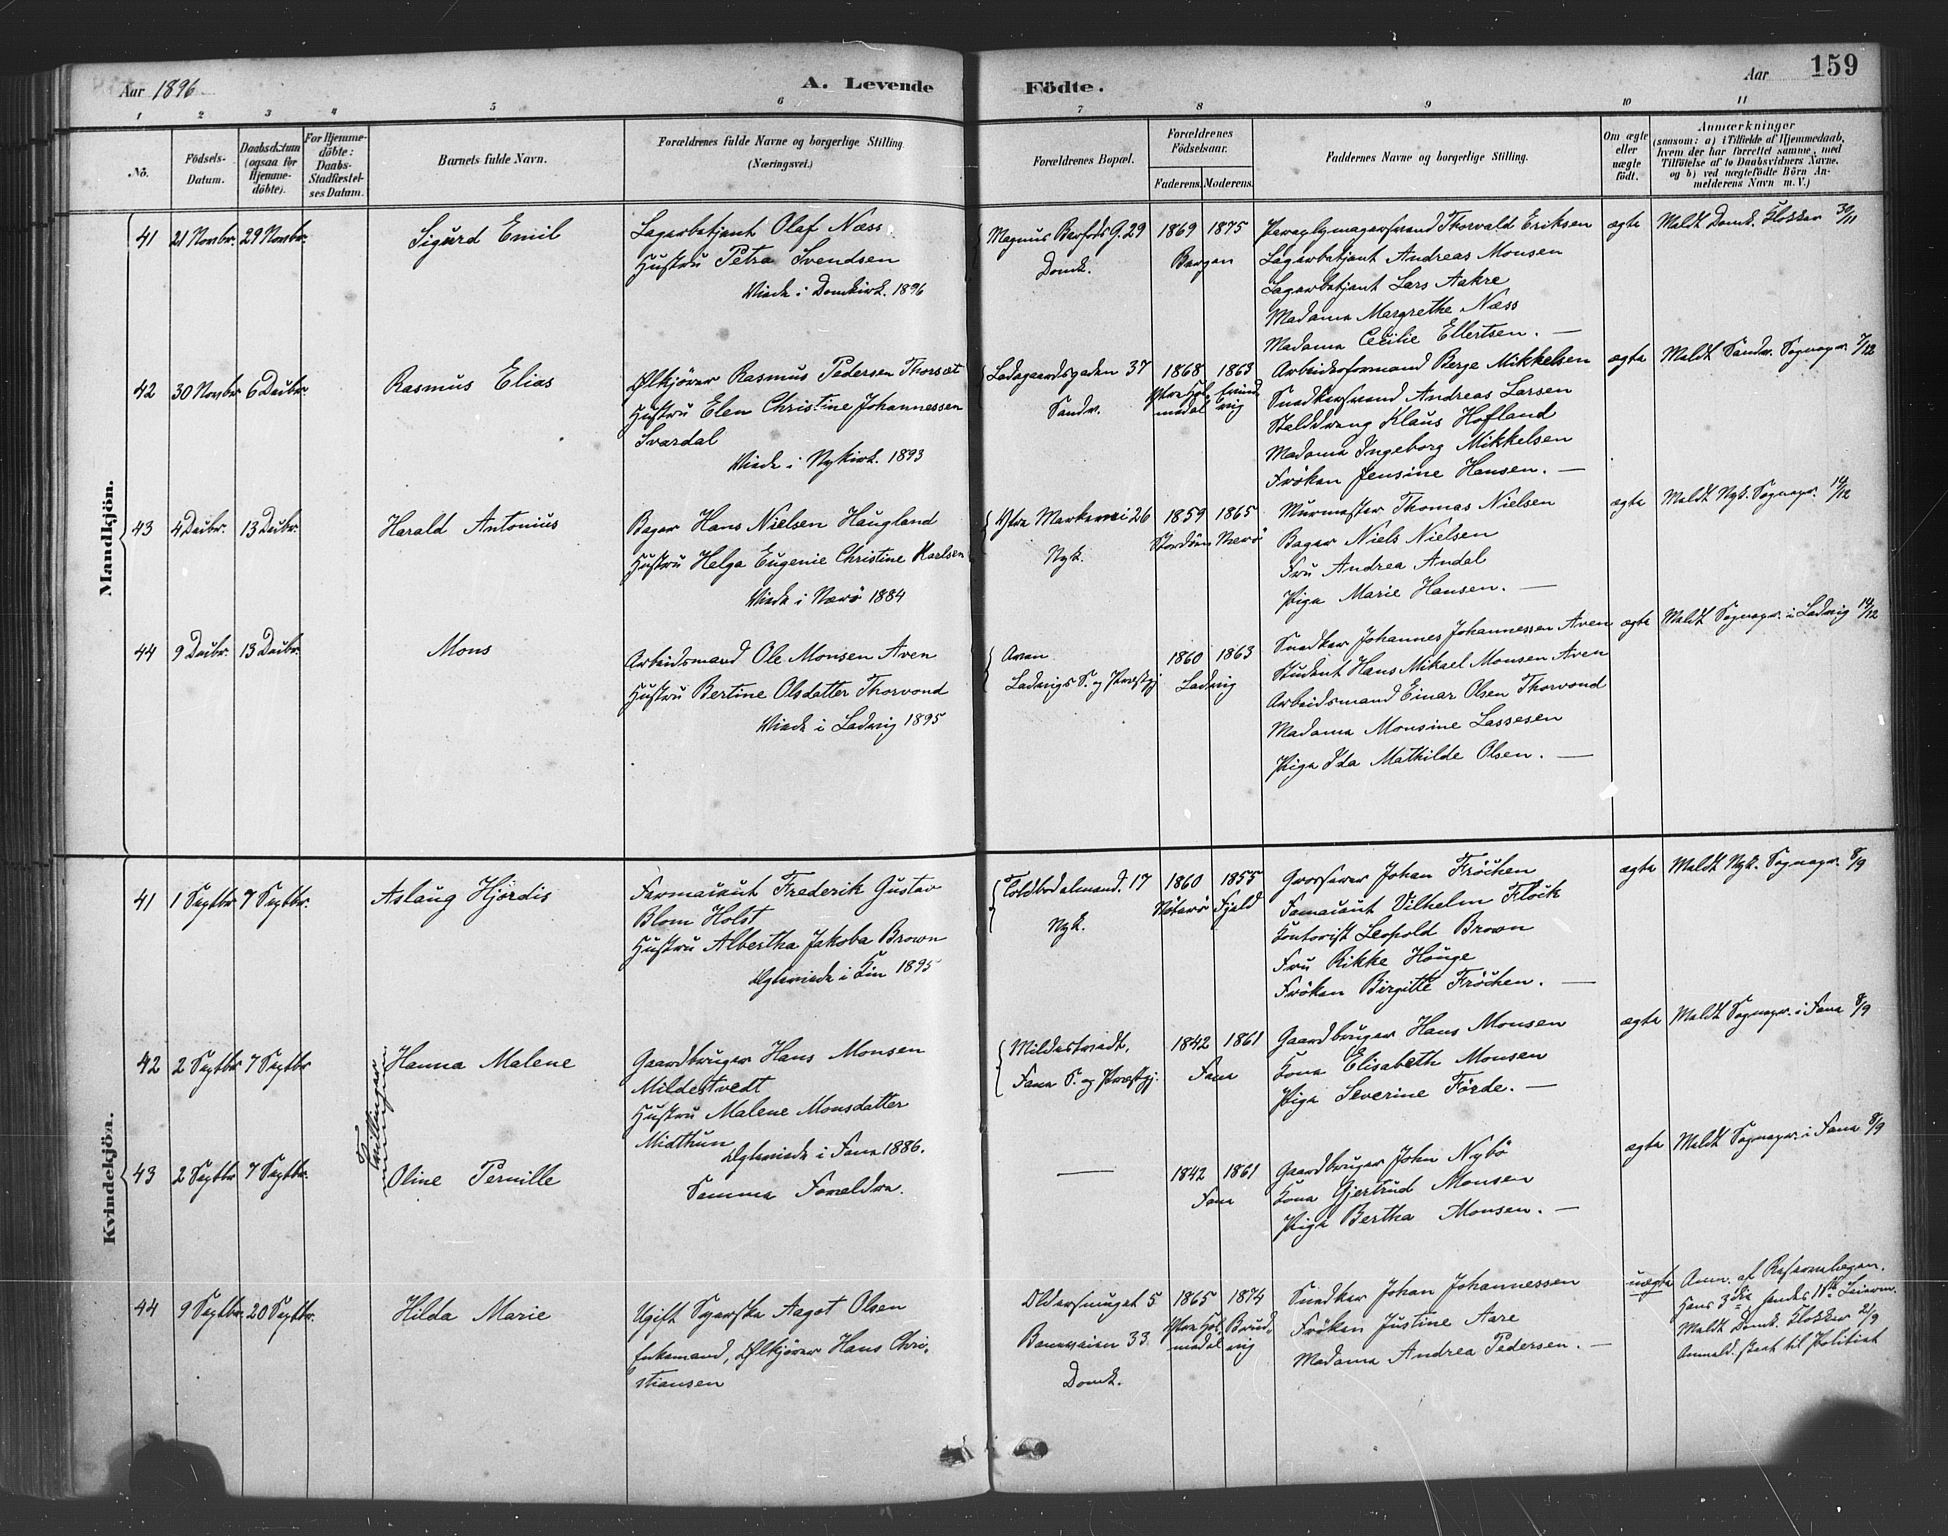 Aar 1896
A. Levende Födte.
Aar
159
1 2 3 4 5 6 7 8 9 10 11
No.
Födsels-
Datum.
Daabsdatum
(ogsaa for
Hjemme-
döbte).
For Hjemme-
döbte:
Daabs-
Stadfæstel-
ses Datum.
Barnets fulde Navn.
Forældrenes fulde Navne og borgerlige Stilling
(Næringsvei.)
Forældrenes Bopæl.
Forældrenes
Födselsaar.
Faderens.
Moderens.
Faddernes Navne og borgerlige Stilling.
Om ægte
eller
uægte
födt.
Anmærkninger
(saasom: a) i Tilfælde af Hjemmedaab,
hvem der har forrettet samme, med
Tilföielse af to Daabsvidners Navne,
og b) ved uægtefödte Börn An-
melderens Navn m. V.)
Mandkjön.
41 21 Novbr. 29 Novbr.
Sigurd Emil
Lagerbetjent Olaf Næss
Hustru Petra Svendsen
Viede i Domkirk. 1896
Magnus Barfods G. 29
Domk.
1869 1875
Bergen
Paraplymagersvend Thorvald Eriksen
Lagerbetjent Andreas Monsen
Lagerbetjent Lars Aakre
Madame Margrethe Næss
Madame Cecilie Ellertsen. —
ægte
Meldt Domk. Klokker 30/11
42 30 Novbr 6 Decbr.
Rasmus Elias
Ølkjører Rasmus Pedersen Thorsæt
Hustru Elen Christine Johannessen
Svardal
Viede i Nykirk. 1893
Ladegaardsgaden 37
Sandv.
1868 1863
Ytre Hol-
medal
Evind
vig
Arbeidsformand Berge Mikkelsen
Snedkersvend Andreas Larsen
Stalddreng Klaus Hofland
Madame Ingeborg Mikkelsen
Frøken Jensine Hansen. —
ægte
Meldt Sandv. Sognepr. 7/12
43 4 Decbr. 13 Decbr.
Harald Antonius
Bager Hans Nielsen Haugland
Hustru Helga Eugenie Christine Karlsen
Viede i Nærö 1884
Ytre Markevei 26
Nyk.
1859 1865
Stordöen Nærö
Murmester Thomas Nielsen
Bager Niels Nielsen
Fru Andrea Andal
Pige Marie Hansen. —
ægte
Meldt Nyk. Sognepr. 14/12
44 9 Decbr. 13 Decbr.
Mons
Arbeidsmand Ole Monsen Aven
Hustru Bertine Olsdatter Thorvond
Viede i Ladvig 1895
Aven
Ladvigs S. og Præstgj.
1860 1863
Ladvig
Snedker Johannes Johannessen Aven
Student Hans Mikael Monsen Aven
Arbeidsmand Einar Olsen Thorvond
Madame Monsine Lassesen
Pige Ida Mathilde Olsen. —
ægte
Meldt Sognepr. i Ladvig 14/12
Kvindekjön.
41 1 Septbr 7 Septbr.
Aslaug Hjördis
Farmaceut Frederik Gustav
Blom Holst
Hustru Albertha Jakoba Brown
Ægteviede i Kin 1895
Toldbodalmend. 17
Nyk.
1860 1855
Nöterö Fjeld
Grosserer Johan Fröchen
Farmaceut Vilhelm Flock
Kontorist Leopold Brown
Fru Rikke Houge
Frøken Birgitte Fröchen. —
ægte
Meldt Nyk. Sognepr. 8/9
42 2 Septbr 7 Septbr
Tvillinger
Hanna Malene
Gaardbruger Hans Monsen
Mildestvedt
Hustru Malene Monsdatter
Midthun
Ægteviede i Fana 1886.
Mildestvedt,
Fana S. og Præstgj.
1842 1861
Fana
Gaardbruger Hans Monsen
Kone Elisabeth Monsen
Pige Severine Förde. —
ægte
Meldt Sognepr. i Fana 8/9
43 2 Septbr 7 Septbr.
Oline Pernille
Samme Forældre.
—
1842 1861
Fana
Gaardbruger John Nybö
Kone Gjertrud Monsen
Pige Bertha Monsen. —
ægte
Meldt Sognepr. i Fana 8/9
44 9 Septbr. 20 Septbr.
Hilda Marie
Ugift Syerske Aagot Olsen
Enkemand, Ølkjører Hans Chri-
stiansen
Oldersmuget 5
Baneveien 33
Domk.
1865 1874
Ytre Hol-
medal
Brud-
vig
Snedker Johan Johannessen
Frøken Justine Aare
Madame Andrea Pedersen. —
uægte
Anm. af Reservelægen.
Hans 3die hendes 1ste Leierm.
Meldt Domk. Klokker 21/9
Anmeld. sent til Politiet